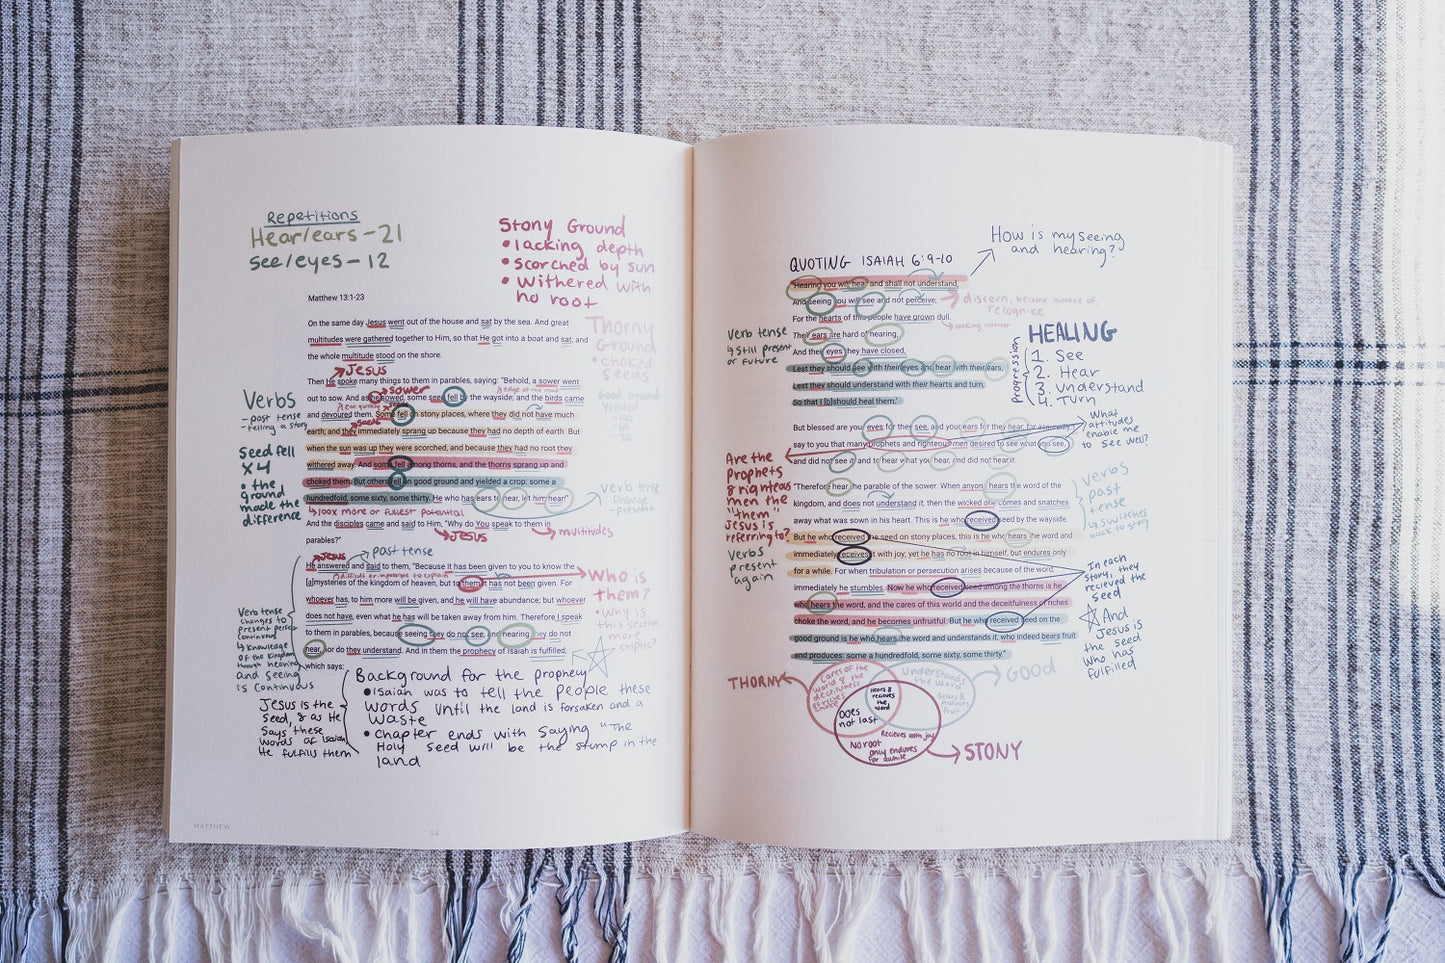 Repetitions
Hear/ears - 21
see/eyes - 12
Stony Ground
• lacking depth
• scorched by sun
• withered with
no root
Matthew 13:1-23
On the same day Jesus went out of the house and sat by the sea. And great
multitudes were gathered together to Him, so that He got into a boat and sat; and
the whole multitude stood on the shore.
Thorny
Ground
• choked
seeds
Good Ground
Yielded
-100
-60
-30
Jesus
Then He spoke many things to them in parables, saying: "Behold, a sower went
sower
out to sow. And as he sowed, some seed fell by the wayside; and the birds came
and devoured them. Some fell on stony places, where they did not have much
earth; and they immediately sprang up because they had no depth of earth. But
when the sun was up they were scorched, and because they had no root they
withered away. And some fell among thorns, and the thorns sprang up and
choked them. But others fell on good ground and yielded a crop: some a
hundredfold, some sixty, some thirty. He who has ears to hear, let him hear!"
Verbs
- past tense
- telling a story
Seed fell
x4
• the
ground
made the
difference
100x more or fullest potential
verb tense
change
- present
And the disciples came and said to Him, "Why do You speak to them in
parables?"
Jesus
multitudes
Jesus
past tense
He answered and said to them, "Because it has been given to you to know the
[a]mysteries of the kingdom of heaven, but to them it has not been given. For
whoever has, to him more will be given, and he will have abundance; but whoever
does not have, even what he has will be taken away from him. Therefore I speak
to them in parables, because seeing they do not see, and hearing they do not
hear, nor do they understand. And in them the prophecy of Isaiah is fulfilled,
which says:
Who is
them?
• Why is
this section
more
cryptic?
Verb tense
changes to
present perfect
continuous
↳ knowledge
of the kingdom
through hearing
and seeing
is continuous
Jesus is the
seed, & as He
says these
words of Isaiah
He fulfills them
Background for the prophey
• Isaiah was to tell the people these
words until the land is forsaken and a
waste
• Chapter ends with saying "The
Holy seed will be the stump in the
land
MATTHEW
54
How is my seeing
and hearing?
QUOTING ISAIAH 6:9-10
"Hearing you will hear and shall not understand,
And seeing you will see and not perceive;
For the hearts of this people have grown dull.
Their ears are hard of hearing,
And their eyes they have closed,
Lest they should see with their eyes and hear with their ears,
Lest they should understand with their hearts and turn,
So that I [b]should heal them."
discern, become aware of,
recognize
lacking interest
Verb tense
↳ still present
or future
HEALING
progression
1. See
2. Hear
3. Understand
4. Turn
But blessed are your eyes for they see, and your ears for they hear; for assuredly, I
say to you that many prophets and righteous men desired to see what you see,
and did not see it, and to hear what you hear, and did not hear it.
What
attitudes
enable me
to see well?
Are the
Prophets
& righteous
men the
"them"
Jesus is
referring to?
"Therefore hear the parable of the sower: When anyone hears the word of the
kingdom, and does not understand it, then the wicked one comes and snatches
away what was sown in his heart. This is he who received seed by the wayside.
But he who received the seed on stony places, this is he who hears the word and
immediately receives it with joy; yet he has no root in himself, but endures only
for a while. For when tribulation or persecution arises because of the word,
immediately he stumbles. Now he who received seed among the thorns is he
who hears the word, and the cares of this world and the deceitfulness of riches
choke the word, and he becomes unfruitful. But he who received seed on the
good ground is he who hears the word and understands it, who indeed bears fruit
and produces: some a hundredfold, some sixty, some thirty."
Verbs
past
tense
↳ switches
back to story
Verbs
present
again
In each
story, they
recieved the
seed
And
Jesus is
the seed
who has
fulfilled
THORNY
Cares of the
world & the
deceitfulness
of riches
choke
Understands
the word
Bears &
produces
fruit
GOOD
Hears &
recieves
the
word
Does
not last
Recieves with joy
No root
only endures
for awhile
STONY
55